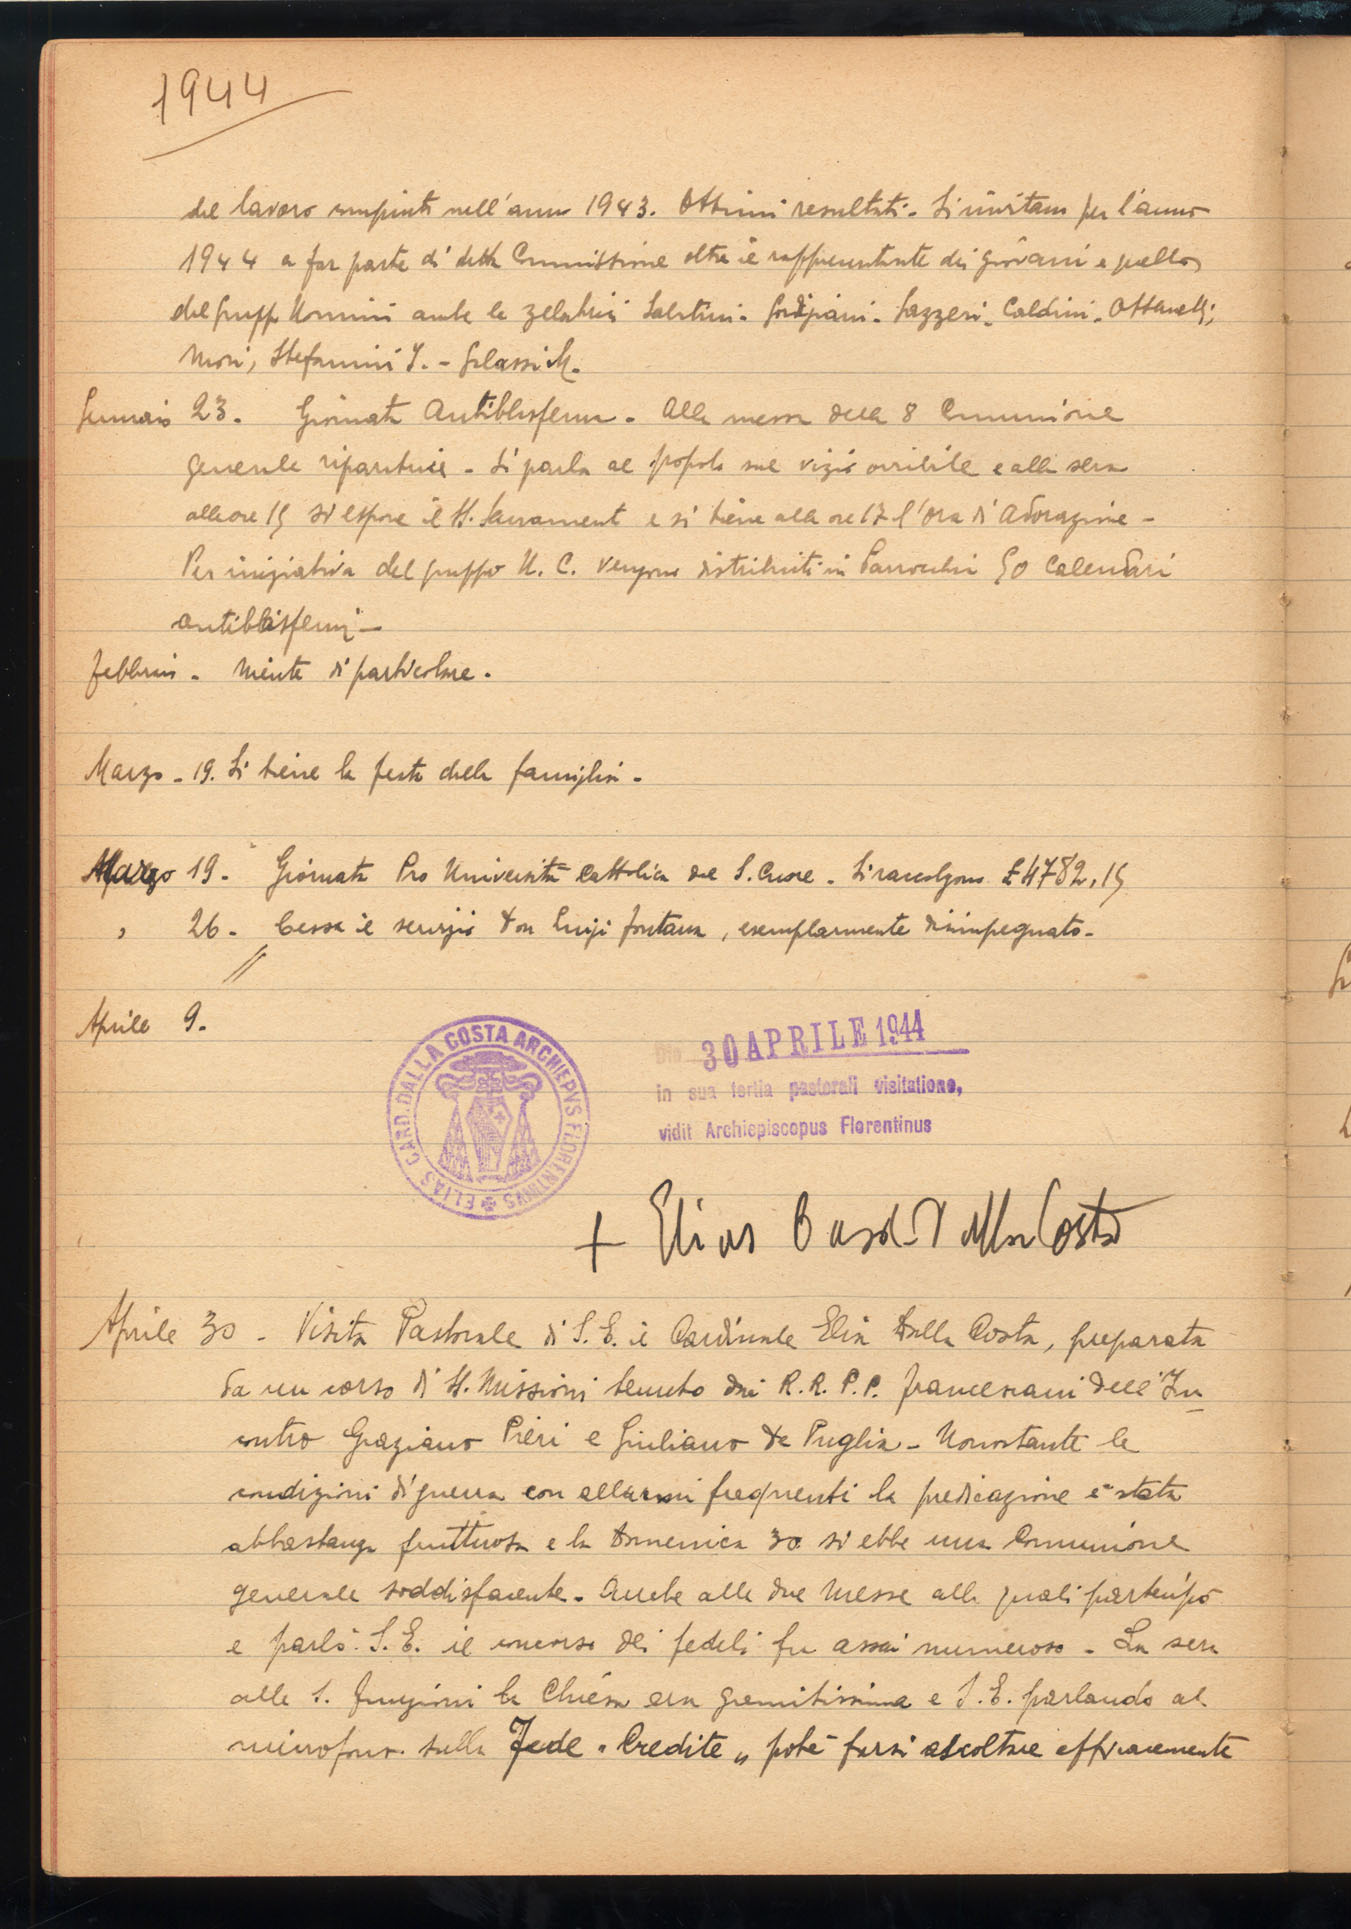 1944
del lavoro compiuto nell'anno 1943. Ottimi resultati. Si invitano per l'anno
1944 a far parte di detta Commissione oltre il rappresentante dei giovani e quello
del gruppo Uomini anche le zelatrici Salvini - - Lazzeri - Caldini - Ottanelli,
Mori, Stefanini I. - Galassi M.
Gennaio 23. Giornata Antiblasfema. Alla messa delle 8 Comunione
generale riparatrice. Si parla al popolo sul vizio orribile e alla sera
alle ore 15 si espone il SS. Sacramento e si tiene alle ore 17 l'ora di Adorazione -
Per iniziativa del gruppo U. C. vengono distribuiti in Parrocchia 50 Calendari
antiblasfemi -
Febbraio - Niente di particolare.
Marzo - 19. Si tiene la festa della famiglia.
Marzo 19 - Giornata Pro Università Cattolica del S. Cuore. Si raccolgono £ 4782,15
" 26 - Cessa il servizio Don Luigi Fontana, esemplarmente disimpegnato.
//
Aprile 9.
ELIAS CARD. DALLA COSTA ARCHIEPVS FLORENTINVS
Die 30 APRILE 1944
in sua tertia pastorali visitatione,
vidit Archiepiscopus Florentinus
+ Elias Card. Dalla Costa
Aprile 30 - Visita Pastorale di S. E. il Cardinale Elia Dalla Costa, preparata
da un corso di SS. Missioni tenuto dai R.R. P.P. francescani dell'In
contro Graziano Pieri e Giuliano da Puglia. Nonostante le
condizioni di guerra con allarmi frequenti la predicazione è stata
abbastanza fruttuosa e la Domenica 30 si ebbe una Comunione
generale soddisfacente. Anche alle due Messe alle quali partecipò
e parlò S. E. il concorso dei fedeli fu assai numeroso. La sera
alle S. funzioni la Chiesa era gremitissima e S. E. parlando al
microfono sulla Fede "Credite" poté farsi ascoltare efficacemente